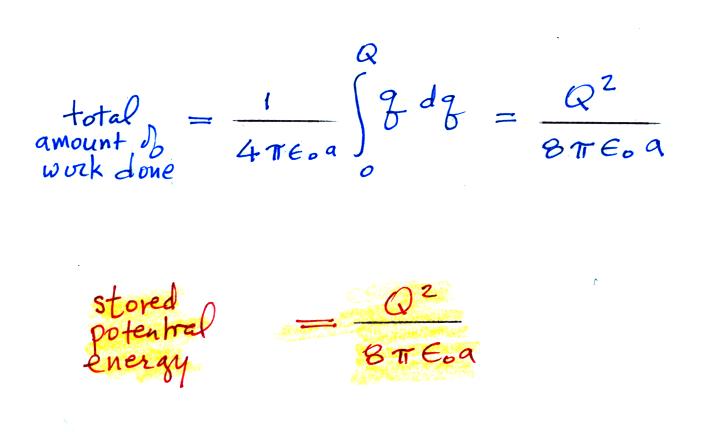 total amount of work done = 1 / 4πϵ₀a ∫₀Q q dq = Q² / 8πϵ₀a
stored potential energy = Q² / 8πϵ₀a